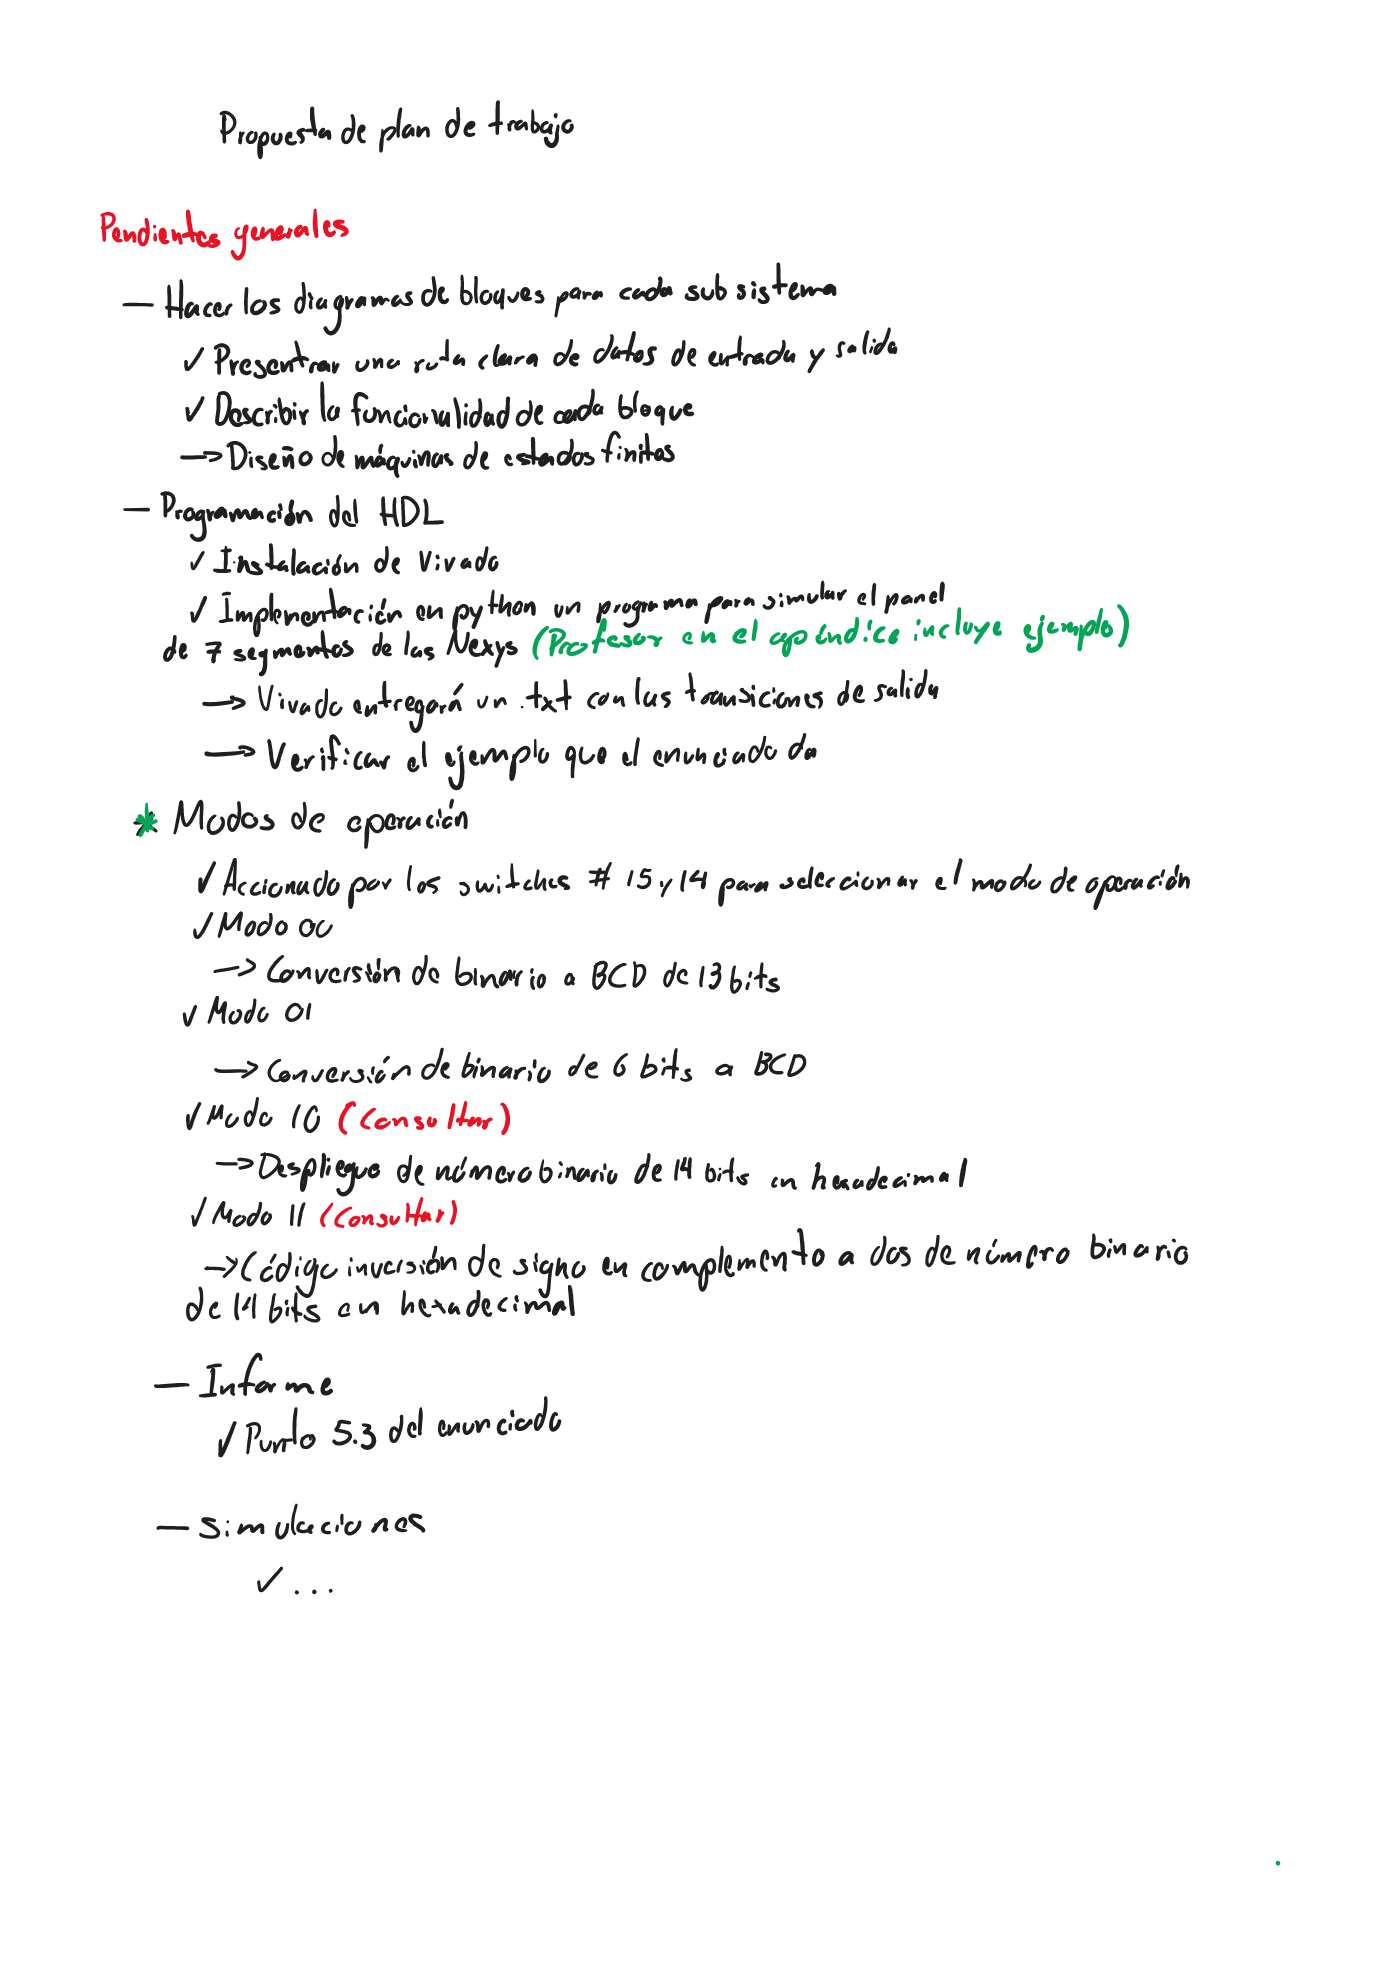 Propuesta de plan de trabajo
Pendientes generales
— Hacer los diagramas de bloques para cada subsistema
✓ Presentrar una ruta clara de datos de entrada y salida
✓ Describir la funcionalidad de cada bloque
→ Diseño de máquinas de estados finitos
— Programación del HDL
✓ Instalación de Vivado
✓ Implementación en python un programa para simular el panel
de 7 segmentos de las Nexys (Profesor en el apéndice incluye ejemplo)
→ Vivado entregará un .txt con las transiciones de salida
→ Verificar el ejemplo que el enunciado da
* Modos de operación
✓ Accionado por los switches # 15 y 14 para seleccionar el modo de operación
✓ Modo 00
→ Conversión de binario a BCD de 13 bits
✓ Modo 01
→ Conversión de binario de 6 bits a BCD
✓ Modo 10 (Consultar)
→ Despliegue de número binario de 14 bits en hexadecimal
✓ Modo 11 (Consultar)
→ Código inversión de signo en complemento a dos de número binario
de 14 bits en hexadecimal
— Informe
✓ Punto 5.3 del enunciado
— Simulaciones
✓ ...